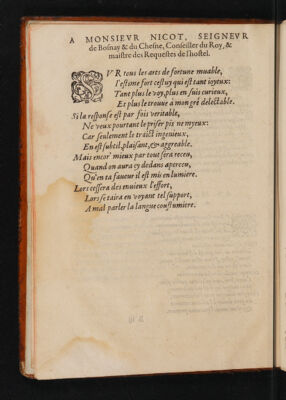 A MONSIEVR NICOT, SEIGNEVR
de Bosnay & du Chesne, Conseiller du Roy, &
maistre des Requestes de l'hostel.
SVR tous les arts de fortune muable,
I'estime fort cestuy qui est tant ioyeux:
Tant plus le voy, plus en suis curieux,
Et plus le trouue à mon gré delectable.
Si la response est par fois veritable,
Ne veux pourtant le priser pis ne myeux:
Car seulement le traict ingenieux,
En est subtil, plaisant, & aggreable.
Mais encor' mieux par tout sera receu,
Quand on aura cy dedans aperceu,
Qu'en ta faueur il est mis en lumiere.
Lors cessera des enuieux l'effort,
Lors se taira en voyant tel support,
A mal parler la langue coustumiere.